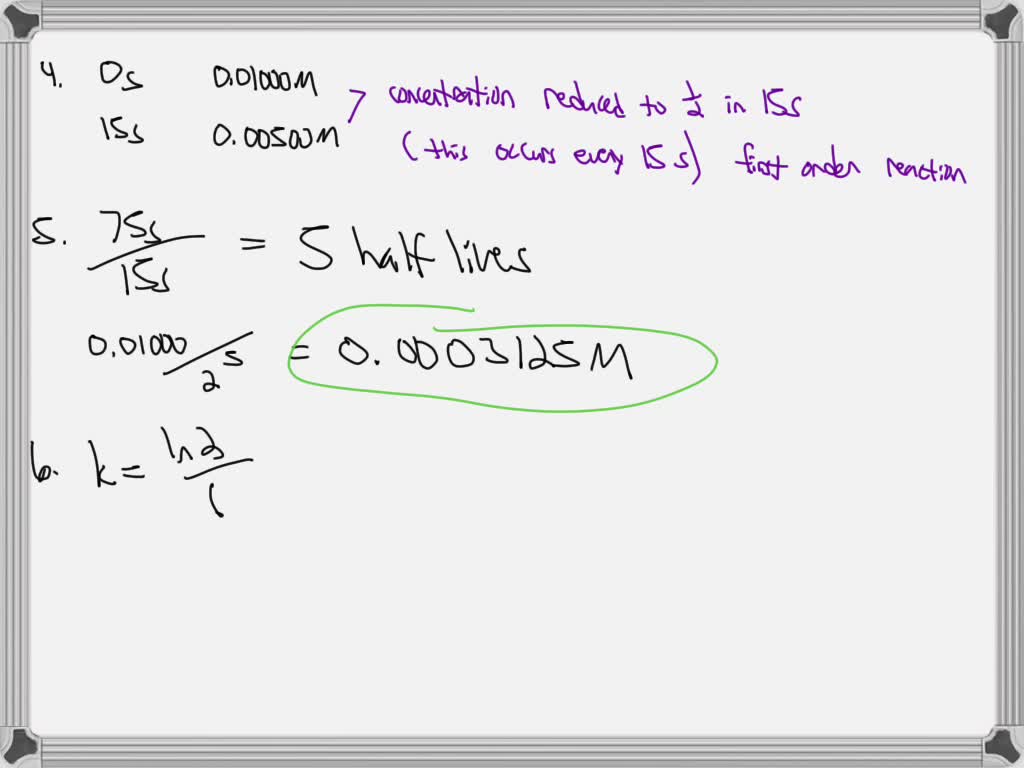 4. 0s 0.01000M
15s 0.00500M
concentration reduced to 1/2 in 15s
(this occurs every 15 s) first order reaction
5. 75s/15s = 5 half lives
0.01000/2^5 = 0.0003125M
6. k = ln2/